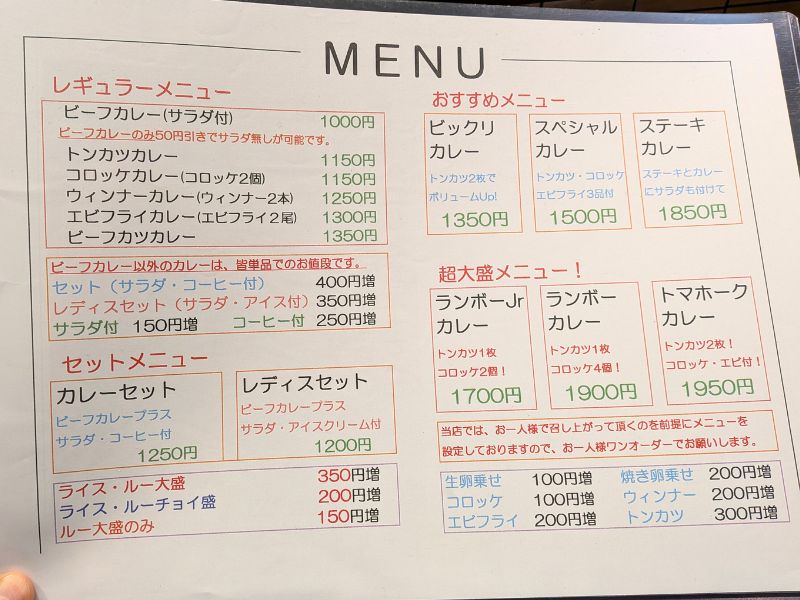 MENU
レギュラーメニュー
ビーフカレー(サラダ付) 1000円
ビーフカレーのみ50円引きでサラダ無しが可能です。
トンカツカレー 1150円
コロッケカレー(コロッケ2個) 1150円
ウィンナーカレー(ウィンナー2本) 1250円
エビフライカレー(エビフライ2尾) 1300円
ビーフカツカレー 1350円
ビーフカレー以外のカレーは、皆単品でのお値段です。
セット(サラダ・コーヒー付) 400円増
レディスセット(サラダ・アイス付) 350円増
サラダ付 150円増 コーヒー付 250円増
セットメニュー
カレーセット
ビーフカレープラス
サラダ・コーヒー付
1250円
レディスセット
ビーフカレープラス
サラダ・アイスクリーム付
1200円
ライス・ルー大盛 350円増
ライス・ルーチョイ盛 200円増
ルー大盛のみ 150円増
おすすめメニュー
ビックリ
カレー
トンカツ2枚で
ボリュームUp!
1350円
スペシャル
カレー
トンカツ・コロッケ
エビフライ3品付
1500円
ステーキ
カレー
ステーキとカレー
にサラダも付けて
1850円
超大盛メニュー!
ランボーJr
カレー
トンカツ1枚
コロッケ2個!
1700円
ランボー
カレー
トンカツ1枚
コロッケ4個!
1900円
トマホーク
カレー
トンカツ2枚!
コロッケ・エビ付!
1950円
当店では、お一人様で召し上がって頂くのを前提にメニューを
設定しておりますので、お一人様ワンオーダーでお願いします。
生卵乗せ 100円増 焼き卵乗せ 200円増
コロッケ 100円増 ウィンナー 200円増
エビフライ 200円増 トンカツ 300円増